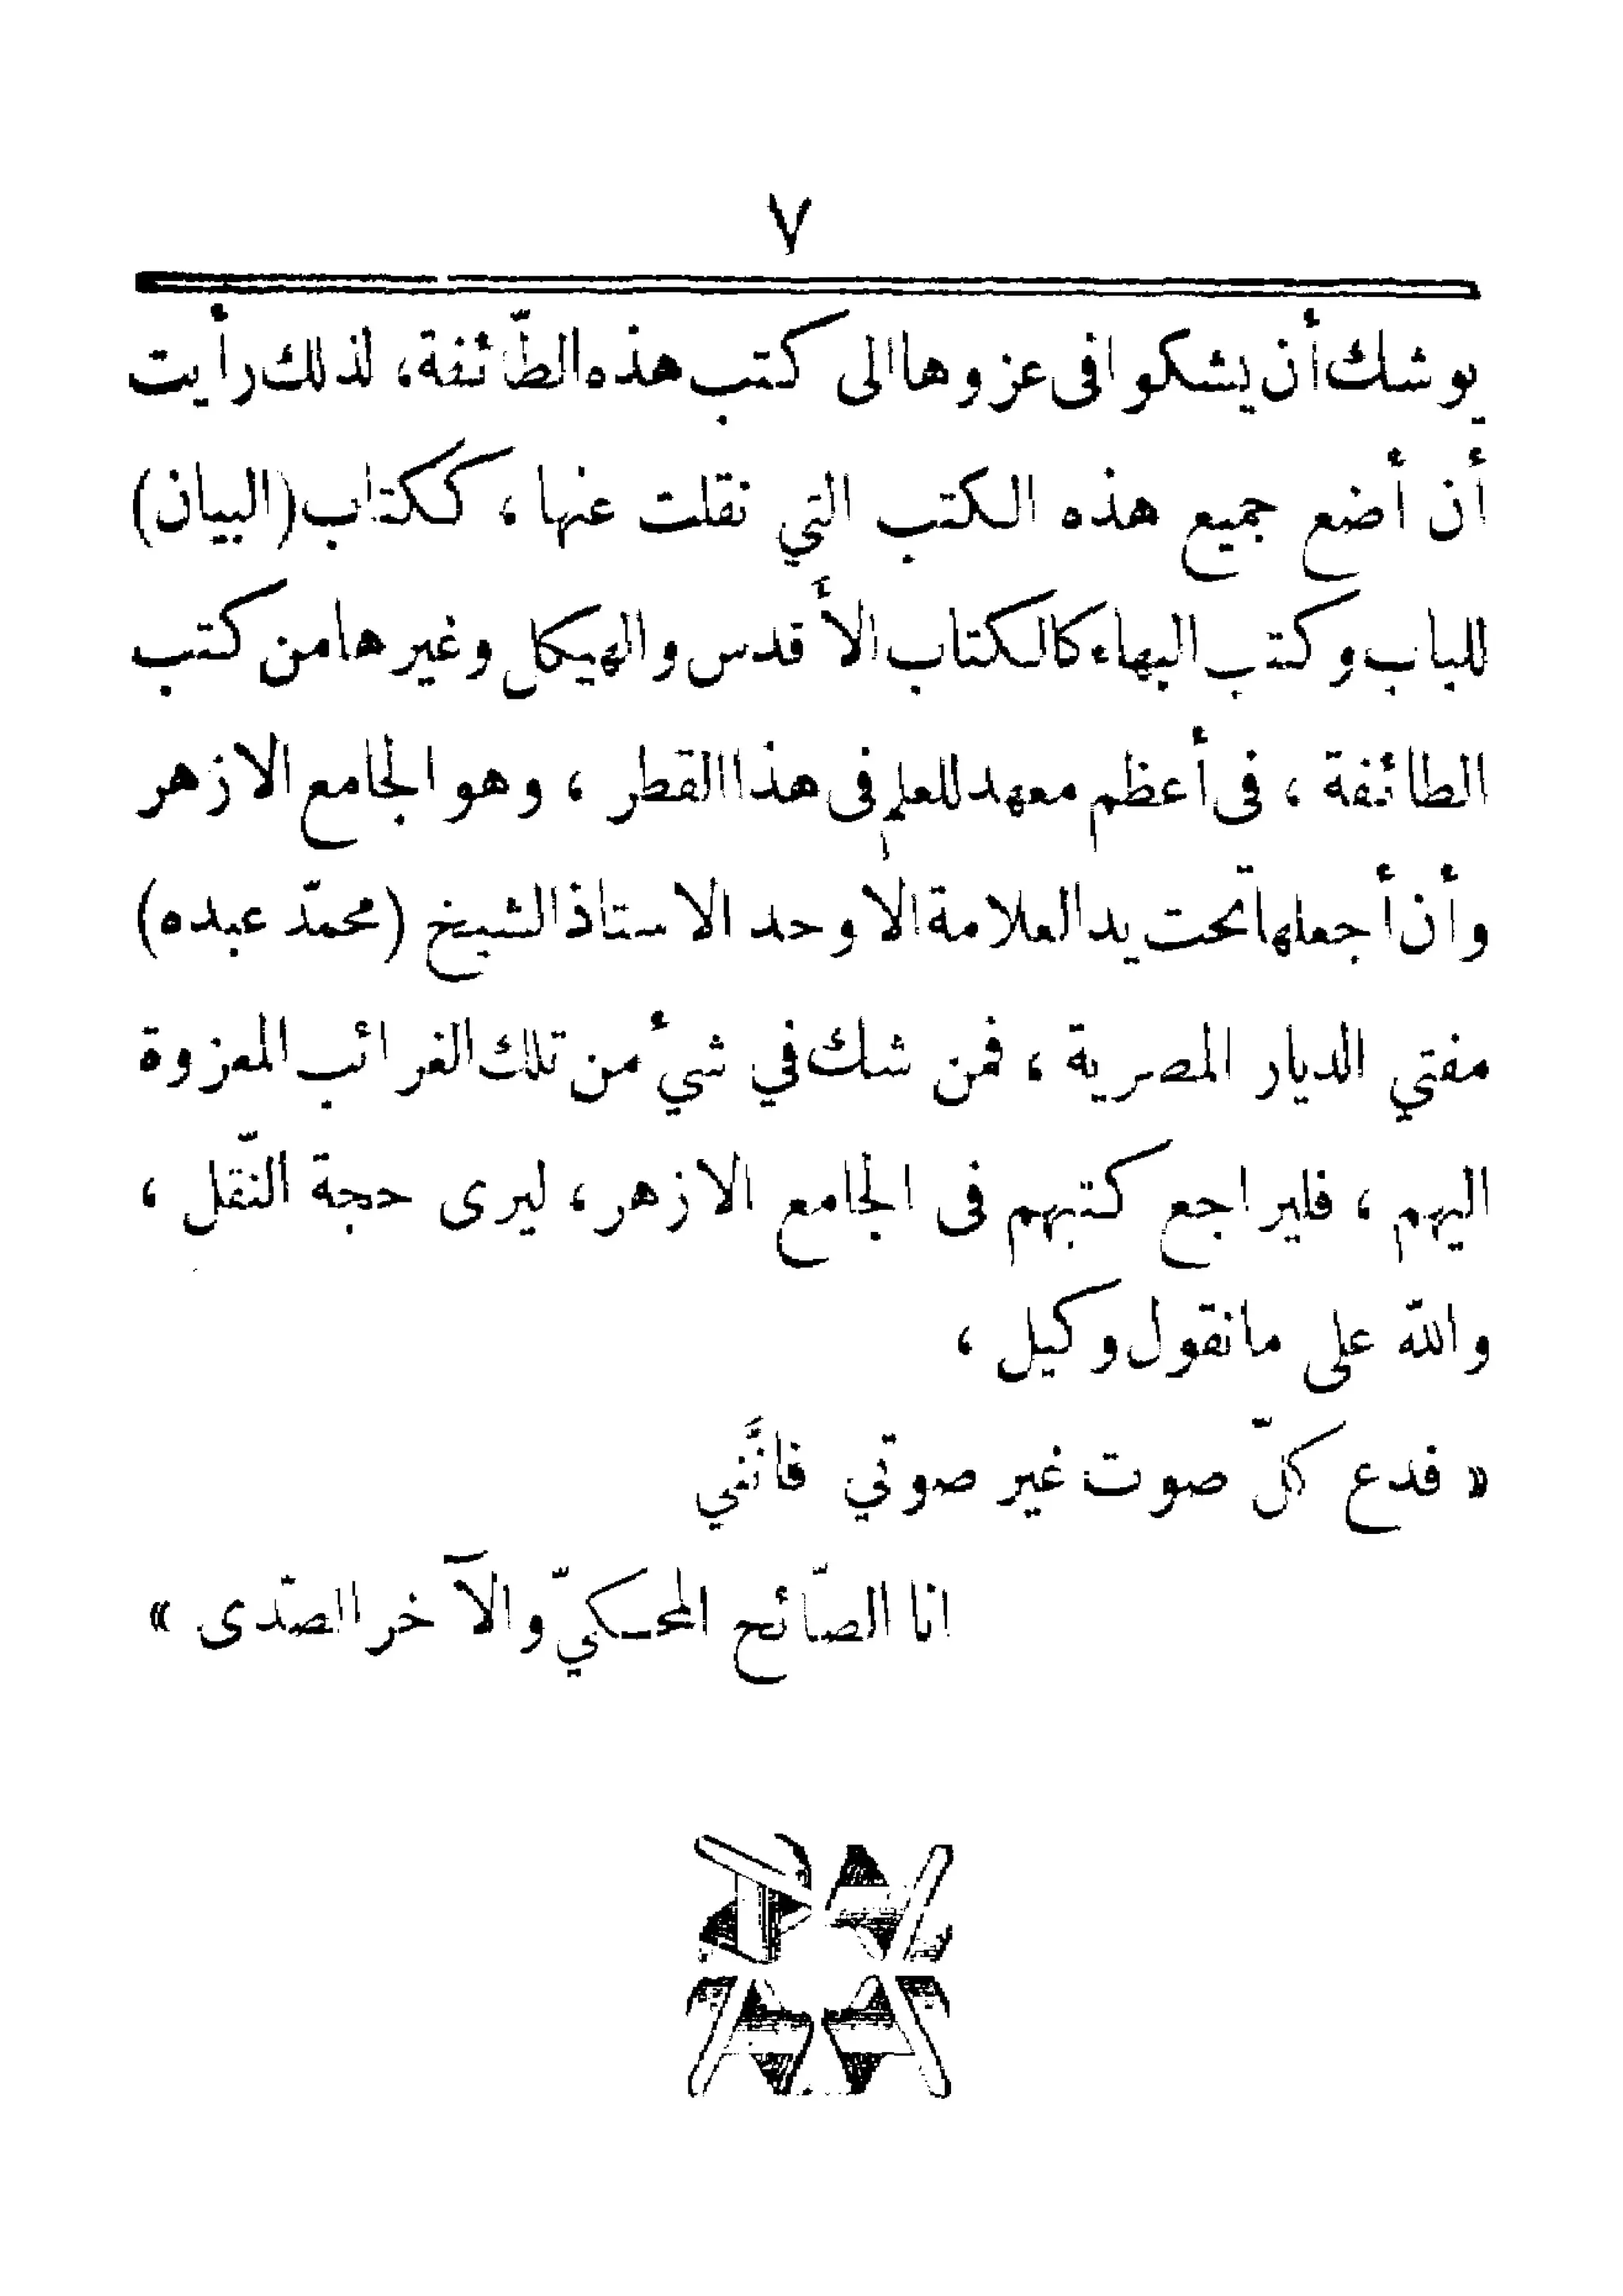 ٧
يوشك أن يشكوا فى عزوها الى كتب هذه الطّائفة، لذلك رأيت
أن أضع جميع هذه الكتب التي نقلت عنها، ككتاب (البيان)
للباب وكتب البهاء كالكتاب الأقدس والهيكل وغيرها من كتب
الطائفة، فى أعظم معهد للعلم فى هذا القطر، وهو الجامع الازهر
وأن أجعلها تحت يد العلامة الاوحد الاستاذ الشيخ (محمّد عبده)
مفتي الديار المصرية، فمن شك في شيء من تلك الغرائب المعزوة
اليهم، فليراجع كتبهم فى الجامع الازهر، ليرى حجة النّقل،
والله على ما نقول وكيل،
« فدع كلّ صوت غير صوتي فانَّني
انا الصّائح المحكيّ والآخر الصّدى »